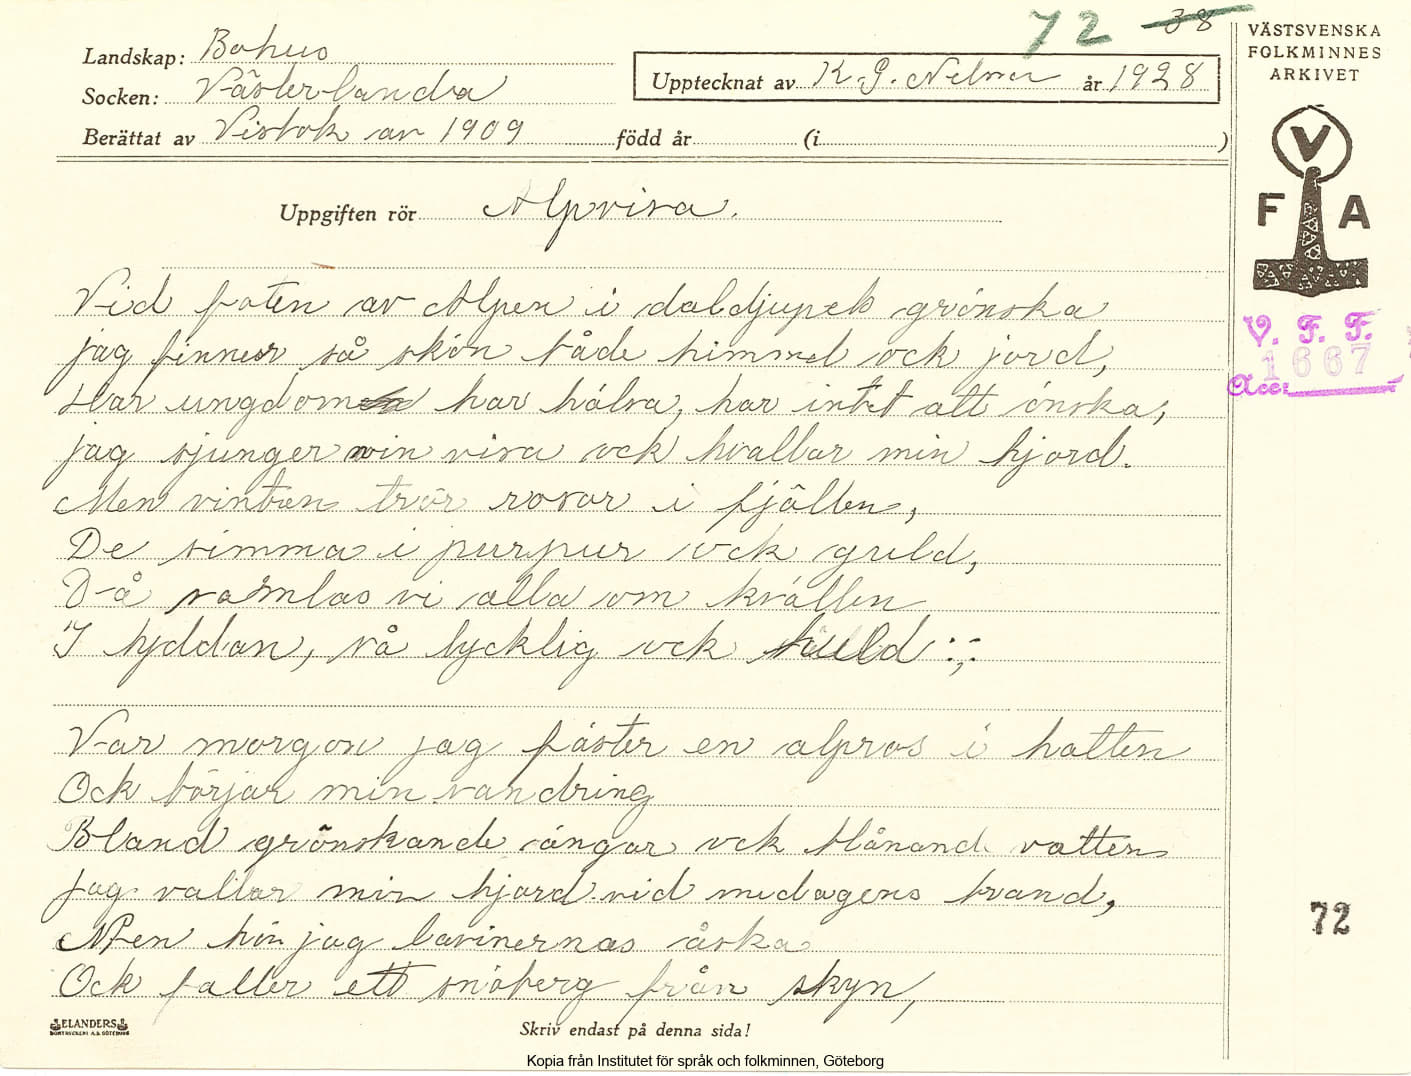 72 38
Landskap: Bohus
Socken: Västerlanda
Berättat av Visbok av 1909 född år (i )
Upptecknat av K. G. Nelson år 1928
VÄSTSVENSKA
FOLKMINNES
ARKIVET
V
F A
V. F. F.
1667
Acc:
Uppgiften rör Alpvisa.
Vid foten av Alpen i daldjupets grönska
jag finner så skön både himmel ock jord,
Har ungdom har hälsa, har intet att önska,
jag sjunger min visa ock hvallar min hjord.
Men rosor i fjällen,
De simma i purpur ock guld,
Då samlas vi alla om kvällen
I hyddan, så lycklig ock huld :;:
Var morgon jag fäster en alpros i hatten
Ock börjar min vandring
Bland grönskande ängar ock blånand vatten
Jag vallar min hjord vid medagens brand,
Men hör jag lavinernas åska
Ock faller ett snöberg från skyn,
72
ELANDERS
BOKTRYCKERI A.B. GÖTEBORG
Skriv endast på denna sida!
Kopia från Institutet för språk och folkminnen, Göteborg